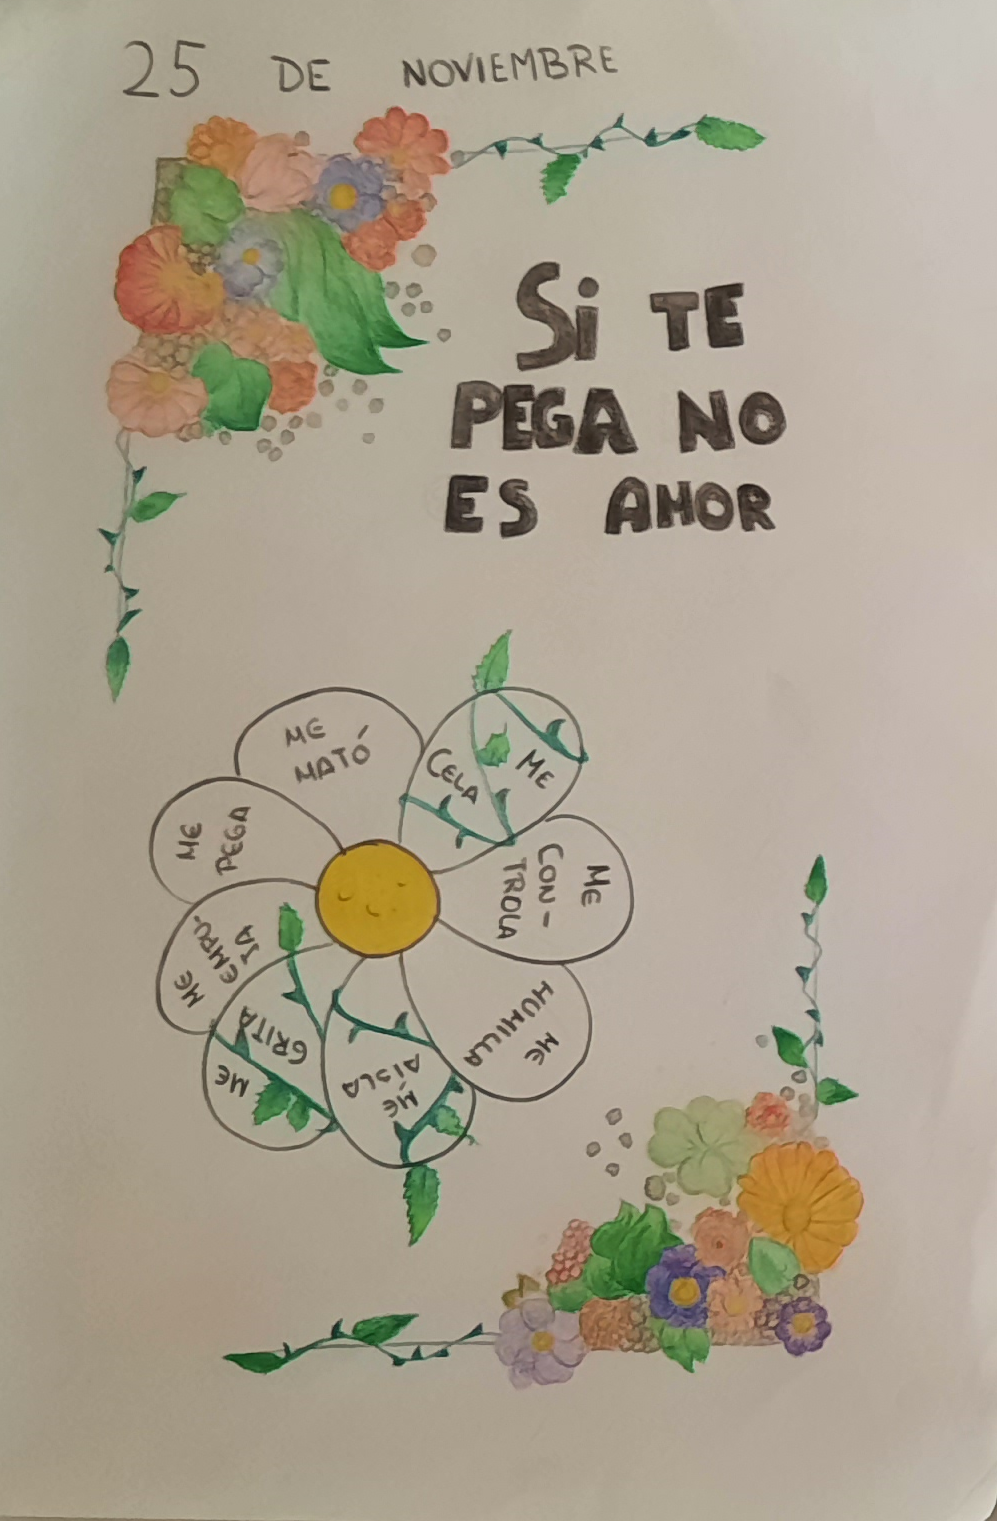 25 DE NOVIEMBRE
Si TE
PEGA NO
ES AMOR
ME
CELA
ME
CON-
TROLA
ME
HUMILLA
ME
AÍSLA
ME
GRITA
ME
EMPU-
JA
ME
PEGA
ME
MATÓ